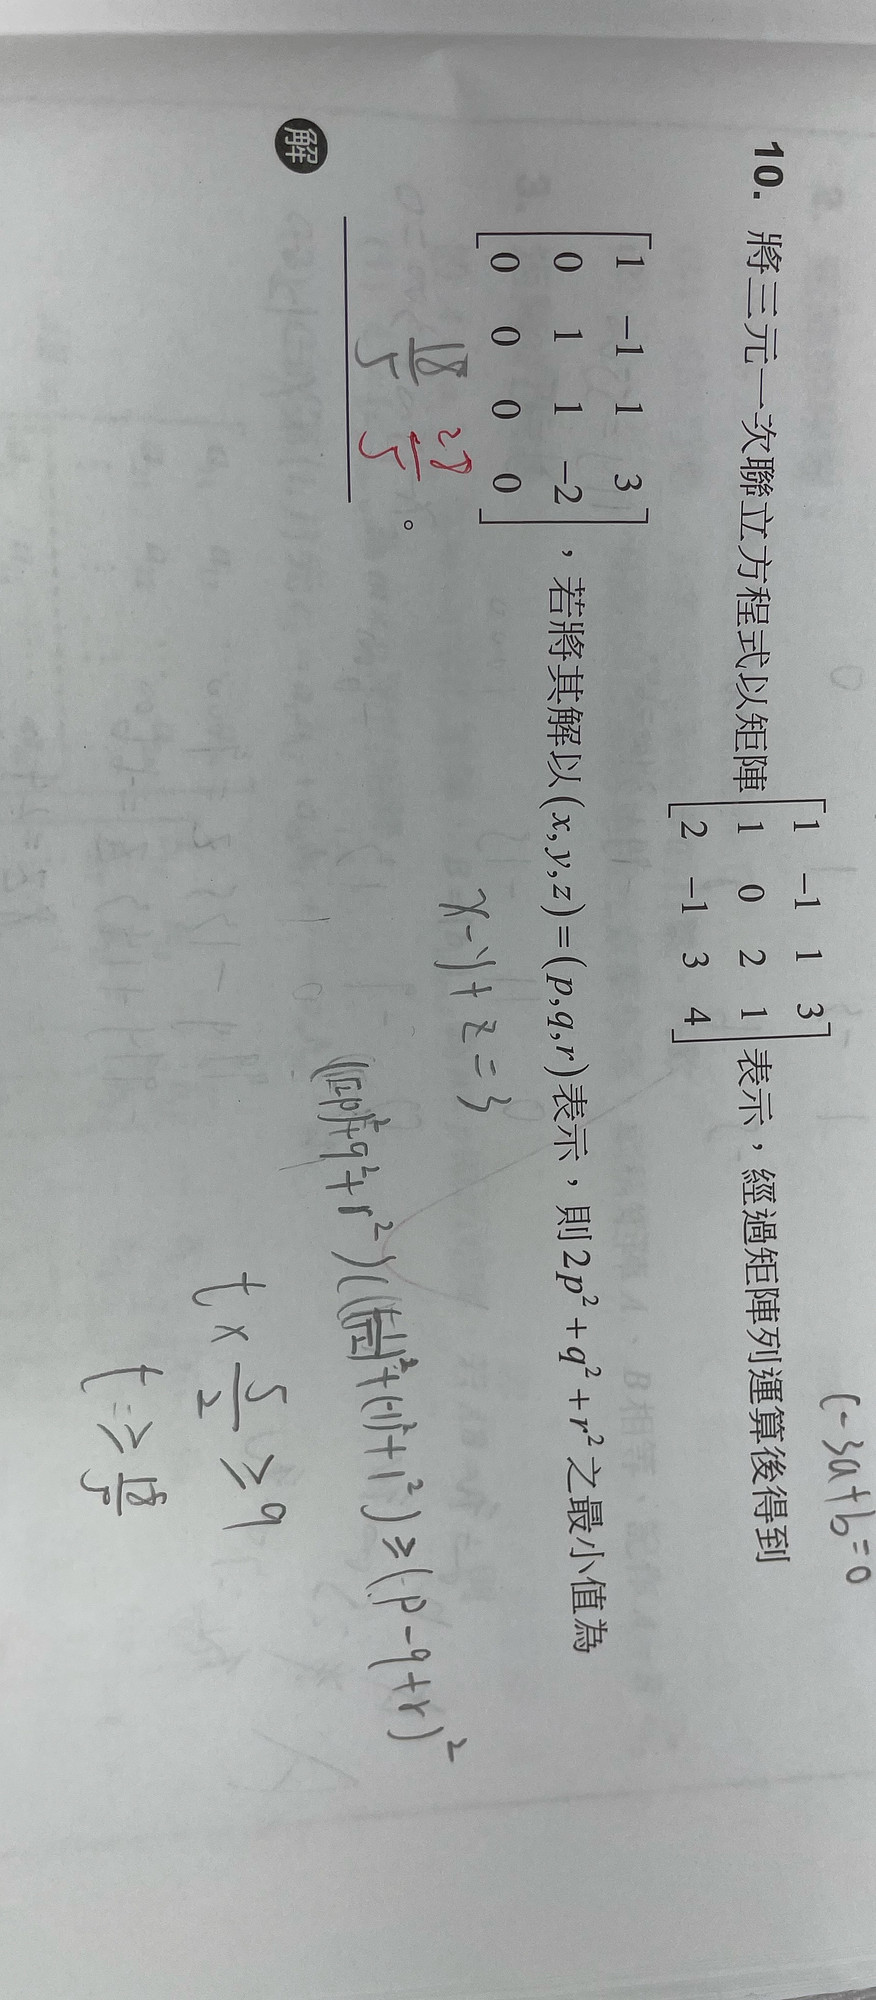 (-3a+b=0
10. 將三元一次聯立方程式以矩陣 [1 -1 1 3
1 0 2 1
2 -1 3 4] 表示，經過矩陣列運算後得到
[1 -1 1 3
0 1 1 -2
0 0 0 0]，若將其解以(x,y,z)=(p,q,r)表示，則2p²+q²+r²之最小值為
18/5 28/5 。
解
x-y+z=3
((√2p)²+q²+r²)((1/√2)²+(-1)²+1²)≥(p-q+r)²
t×5/2≥9
t≥18/5